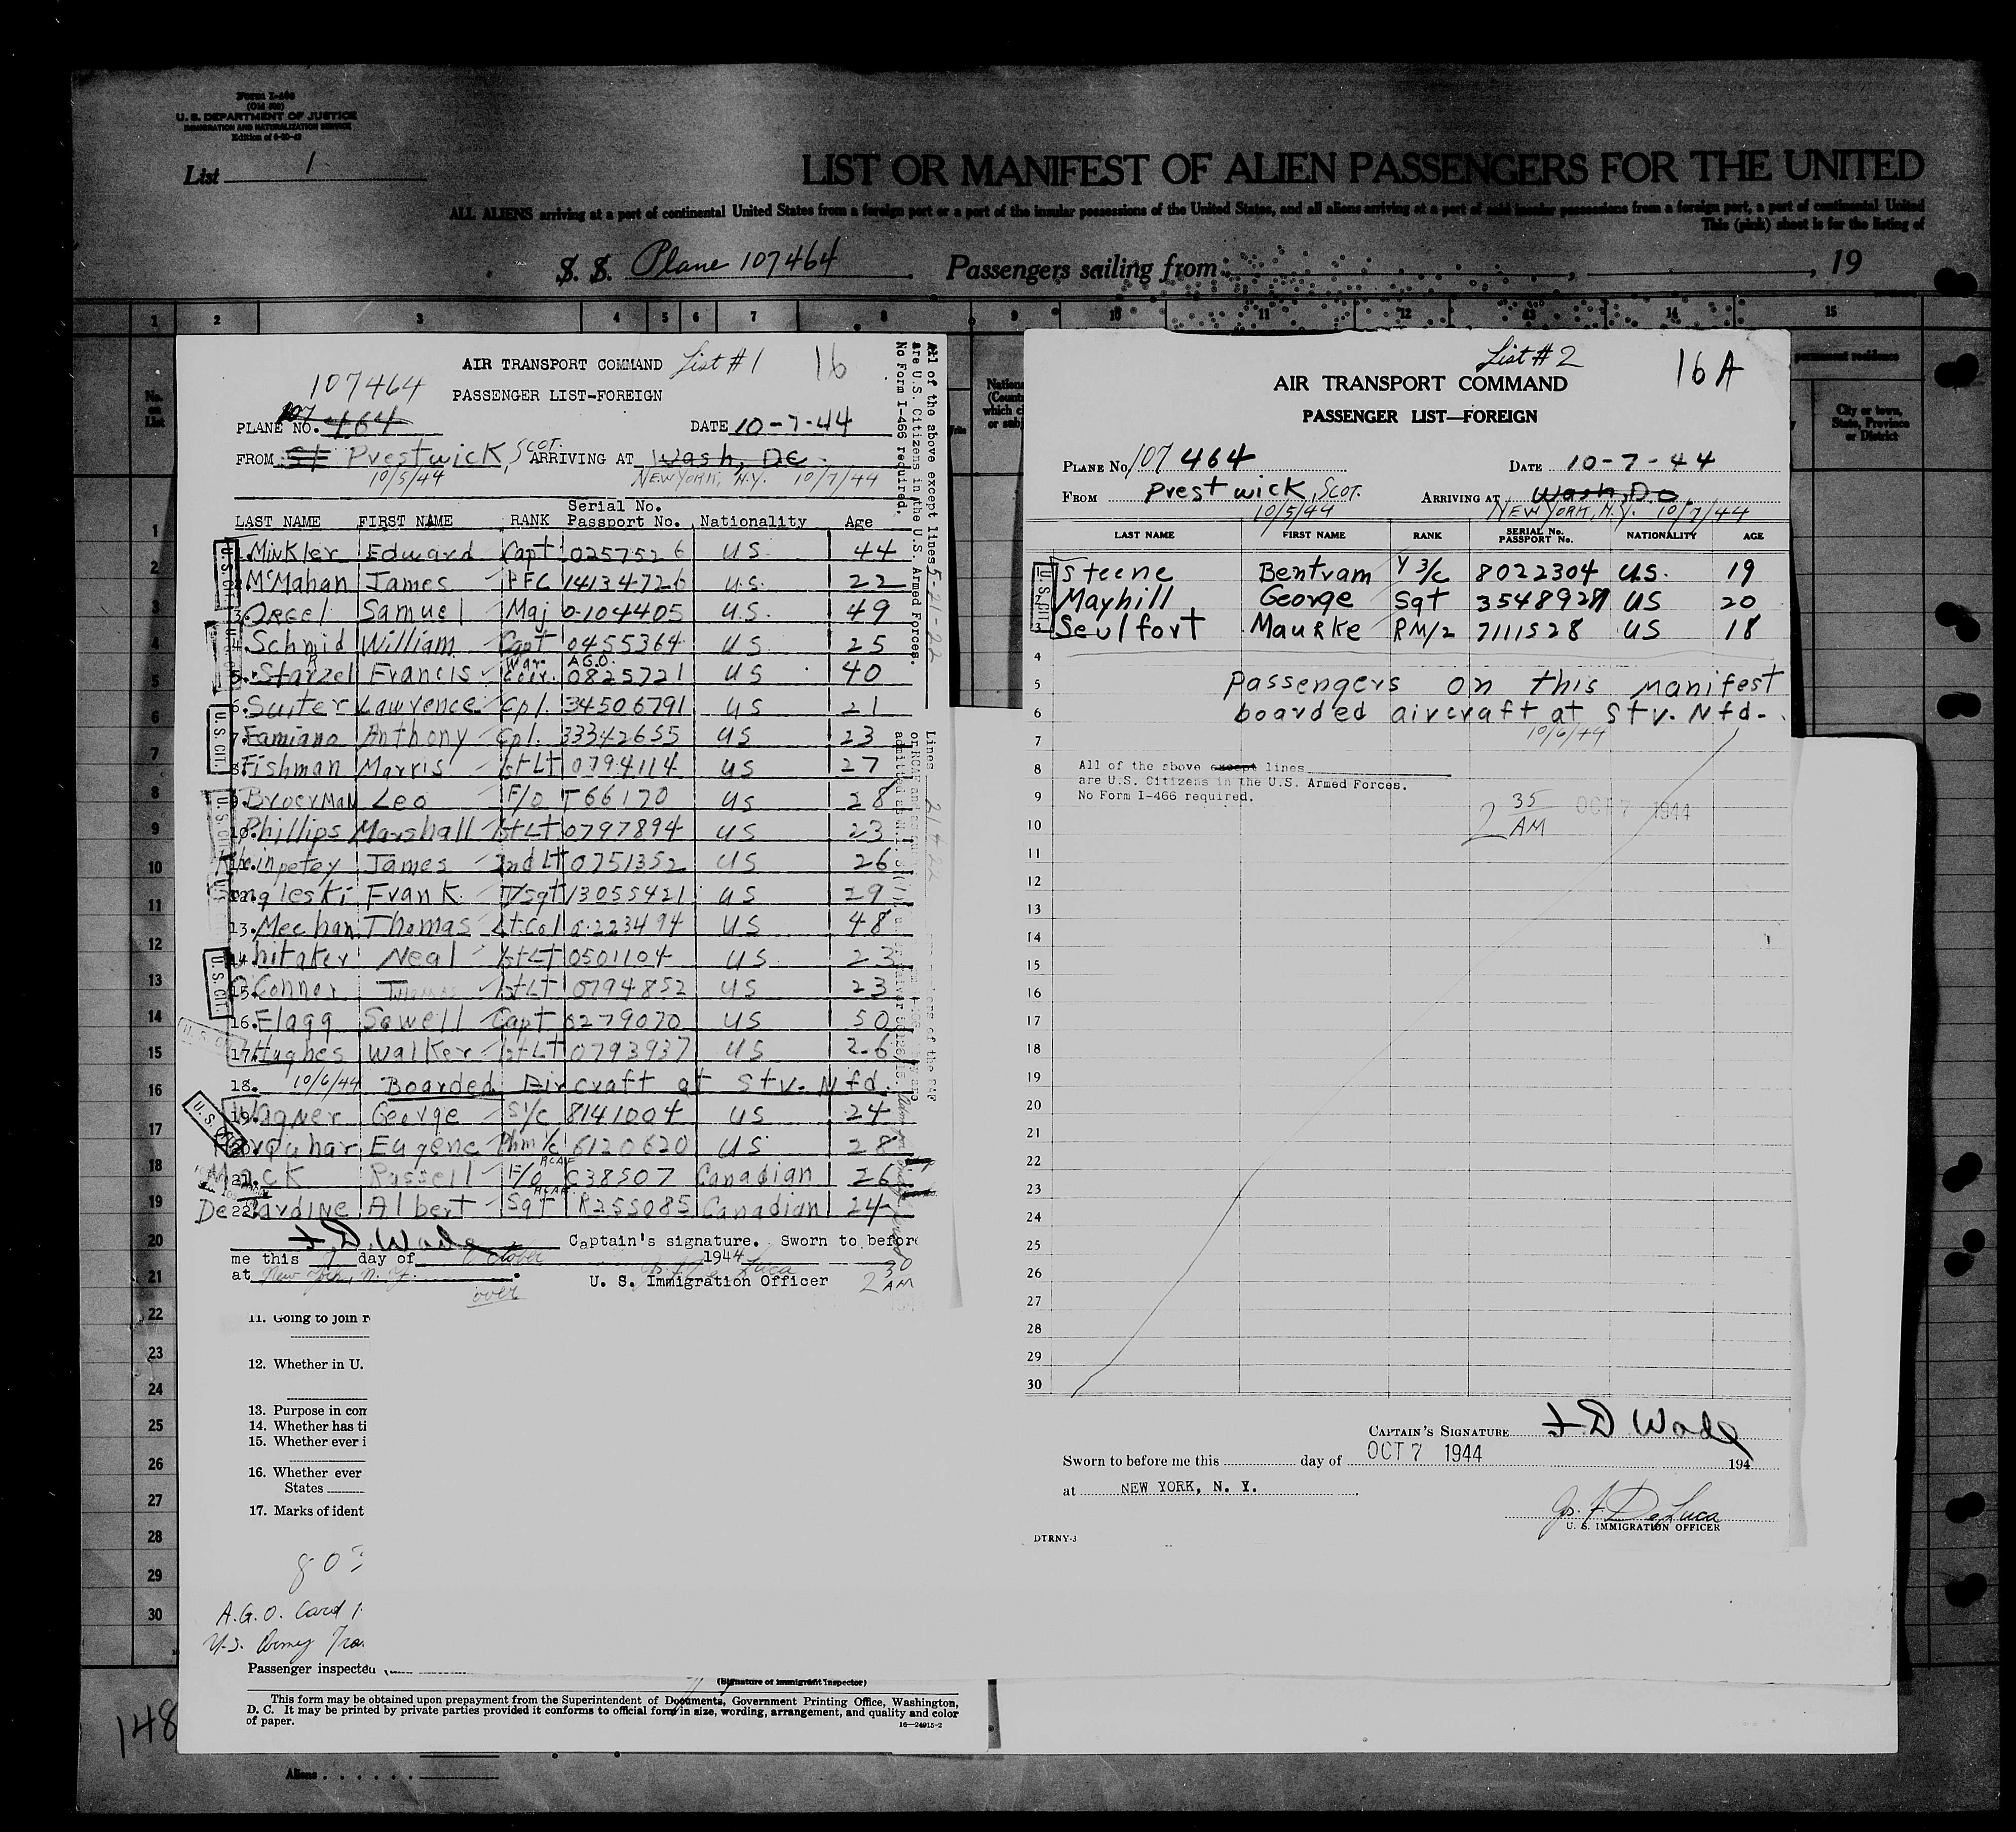 Form I-466
(Old 500)
U. S. DEPARTMENT OF JUSTICE
IMMIGRATION AND NATURALIZATION SERVICE
List 1
LIST OR MANIFEST OF ALIEN PASSENGERS FOR THE UNITED
ALL ALIENS arriving at a port of continental United States from a foreign port or a port of the insular possessions of the United States, and all aliens arriving at a port of said insular possessions from a foreign port, a port of continental United
This (pink) sheet is for the listing of
S. S. Plane 107464 Passengers sailing from , , 19
1 2 3 4 5 6 7 8 9 10 11 12 13 14 15
No. on List
permanent residence
City or town, State, Province or District
AIR TRANSPORT COMMAND List #1 16
107464
PASSENGER LIST-FOREIGN
PLANE NO. 107 464 DATE 10-7-44
FROM Prestwick, SCOT. ARRIVING AT Wash, DC.
10/5/44 NEW YORK, N.Y. 10/7/44
Serial No.
LAST NAME FIRST NAME RANK Passport No. Nationality Age
1. Minkler Edward Capt 0257526 US 44
2. McMahan James PFC 14134726 U.S. 22
3. Orgel Samuel Maj 0-104405 U.S. 49
4. Schmid William Capt 0455364 US 25
5. Starzel Francis War Corr. A.G.O. 0825721 US 40
6. Suiter Lawrence Cpl. 34506791 US 21
7. Famiano Anthony Cpl. 33342655 US 23
8. Fishman Morris 1st Lt 0794114 US 27
9. Broerman Leo F/O T66170 US 28
10. Phillips Marshall 1st Lt 0797894 US 23
11. James 2nd Lt 0751352 US 26
12. Frank T/Sgt 13055421 US 29
13. Meehan Thomas Lt. Col 0-223494 US 48
14. hitaker Neal 1st Lt 0501104 US 23
15. O'Connor Thomas 1st Lt 0794852 US 23
16. Flagg Sewell Capt 0279070 US 50
17. Hughes Walker 1st Lt 0793937 US 26
18. 10/6/44 Boarded Aircraft at Stv. Nfd.
19. Wagner George S1/c 8141004 US 24
20. Farquhar Eugene Phm 1/c 6120620 US 28
21. Mack Russell F/O RCAF C38507 Canadian 26
22. De Jardine Albert Sgt RCAF R255085 Canadian 24
F D. Wade Captain's signature. Sworn to before
me this 7 day of October 1944 Jos. F. De Luca
at New York, N.Y. U. S. Immigration Officer 2 30 AM
over
All of the above except lines 5-21-22
are U.S. Citizens in the U.S. Armed Forces.
No Form I-466 required.
Lines 21 + 22
U.S. CIT.
U.S. CIT.
U.S. CIT.
11. Going to join r
12. Whether in U.
13. Purpose in com
14. Whether has ti
15. Whether ever i
16. Whether ever
States
17. Marks of ident
A.G.O. Card
U.S. Army Tra
Passenger inspected
(Signature of immigrant inspector)
This form may be obtained upon prepayment from the Superintendent of Documents, Government Printing Office, Washington,
D. C. It may be printed by private parties provided it conforms to official form in size, wording, arrangement, and quality and color
of paper. 16—24915-2
148
Aliens
List #2 16A
AIR TRANSPORT COMMAND
PASSENGER LIST—FOREIGN
PLANE NO 107 464 DATE 10-7-44
FROM Prestwick, SCOT. ARRIVING AT Wash, DC
10/5/44 NEW YORK, N.Y. 10/7/44
LAST NAME FIRST NAME RANK SERIAL NO. PASSPORT NO. NATIONALITY AGE
1 Steene Bentram Y 3/c 8022304 U.S. 19
2 Mayhill George Sgt 35489289 US 20
3 Seulfort Maurke RM/2 7111528 US 18
4
5 Passengers on this manifest
6 boarded aircraft at Stv. Nfd.
10/6/44
7
8 All of the above except lines
are U.S. Citizens in the U.S. Armed Forces.
9 No Form I-466 required.
2 35 AM OCT 7 1944
10
11
12
13
14
15
16
17
18
19
20
21
22
23
24
25
26
27
28
29
30
CAPTAIN'S SIGNATURE F D Wade
Sworn to before me this day of OCT 7 1944 194
at NEW YORK, N. Y.
Jos. F. De Luca
U. S. IMMIGRATION OFFICER
DTRNY-3